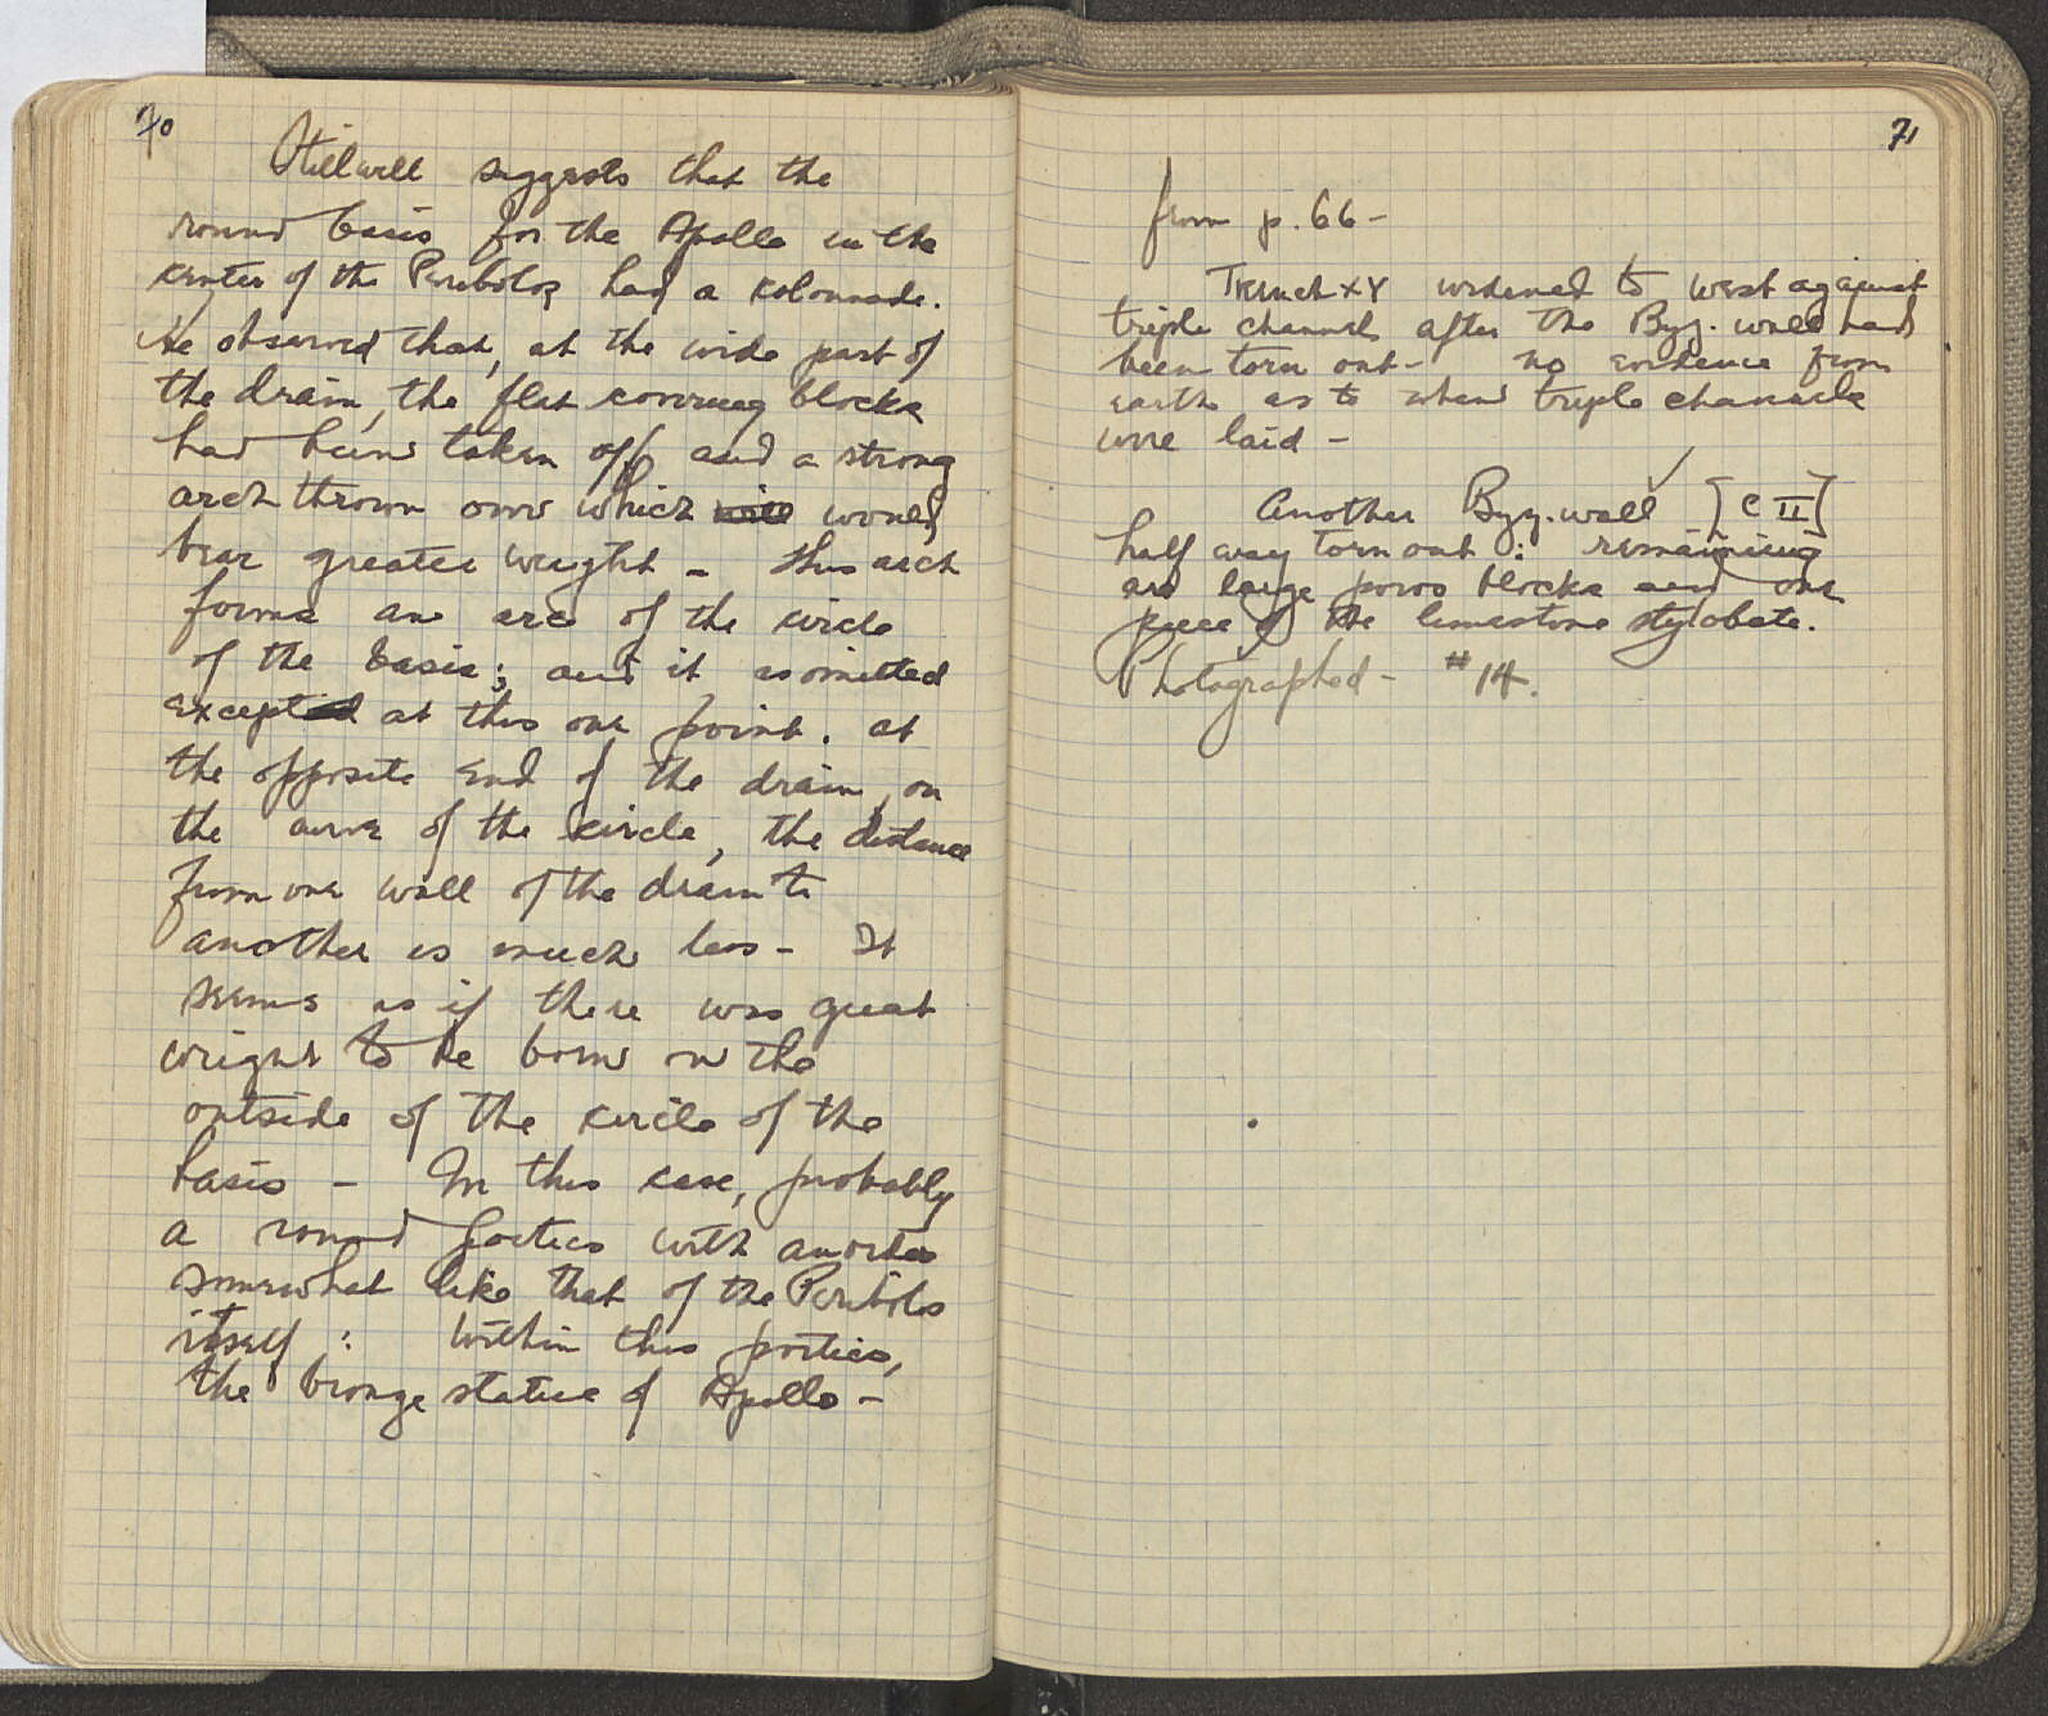 70
Stillwell suggests that the
round basis for the Apollo in the
center of the Peribolos had a kolonnade.
He observed that, at the wide part of
the drain, the flat covering blocks
had been taken off and a strong
arch thrown over which will would
bear greater weight - this arch
forms an arc of the circle
of the basis; and it is omitted
excepted at this one point. at
the opposite end of the drain, on
the curve of the circle, the distance
from one wall of the drain to
another is much less - It
seems as if there was great
weight to be borne on the
outside of the circle of the
basis - In this case, probably
a round portico with an order
somewhat like that of the Peribolos
itself : within this portico,
the bronze statue of Apollo -
71
from p. 66 -
Trench XY widened to west against
triple channels after the Byz. wall had
been torn out - no evidence from
earth as to when triple channels
were laid -
Another Byz. wall [C II]
half way torn out : remaining
are large poros blocks and one
piece of the limestone stylobate.
Photographed - #14.